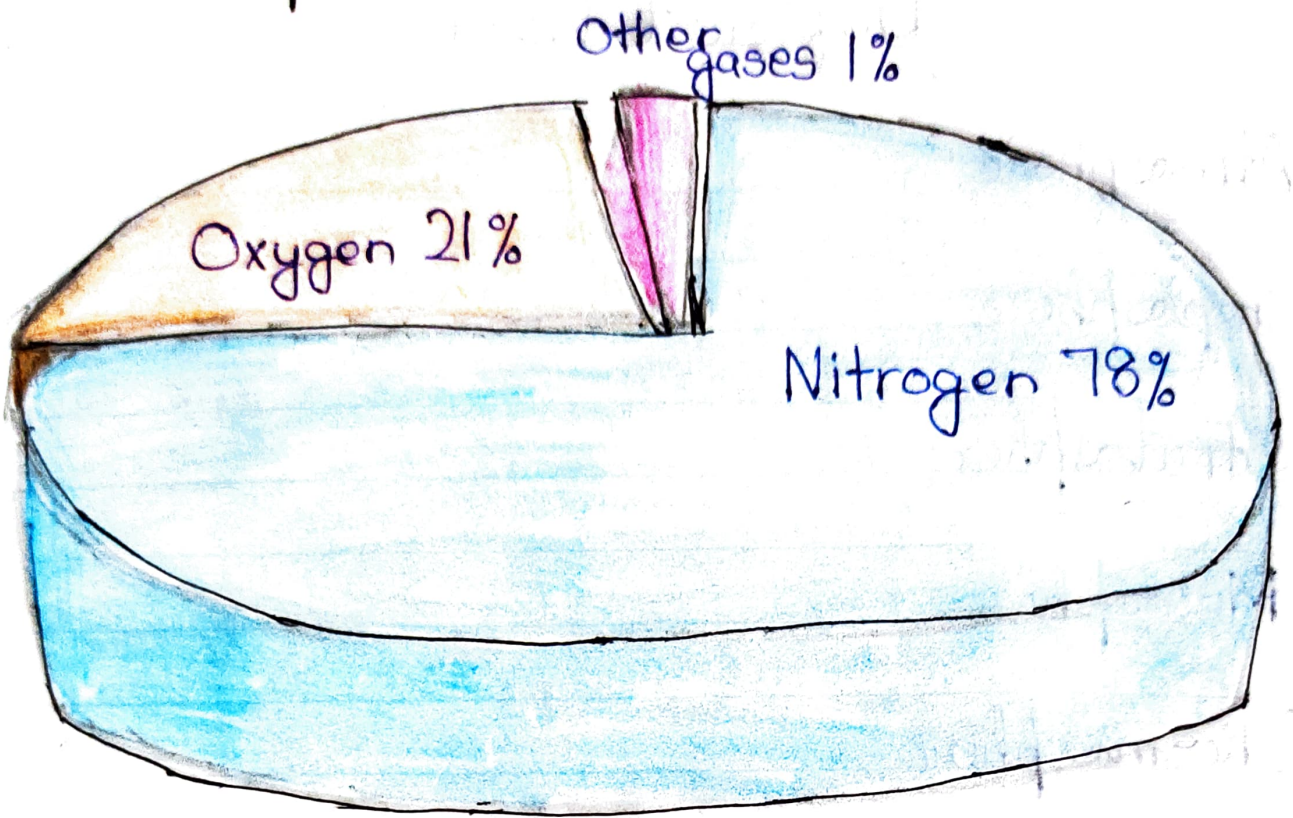 Other
gases 1%
Oxygen 21%
Nitrogen 78%